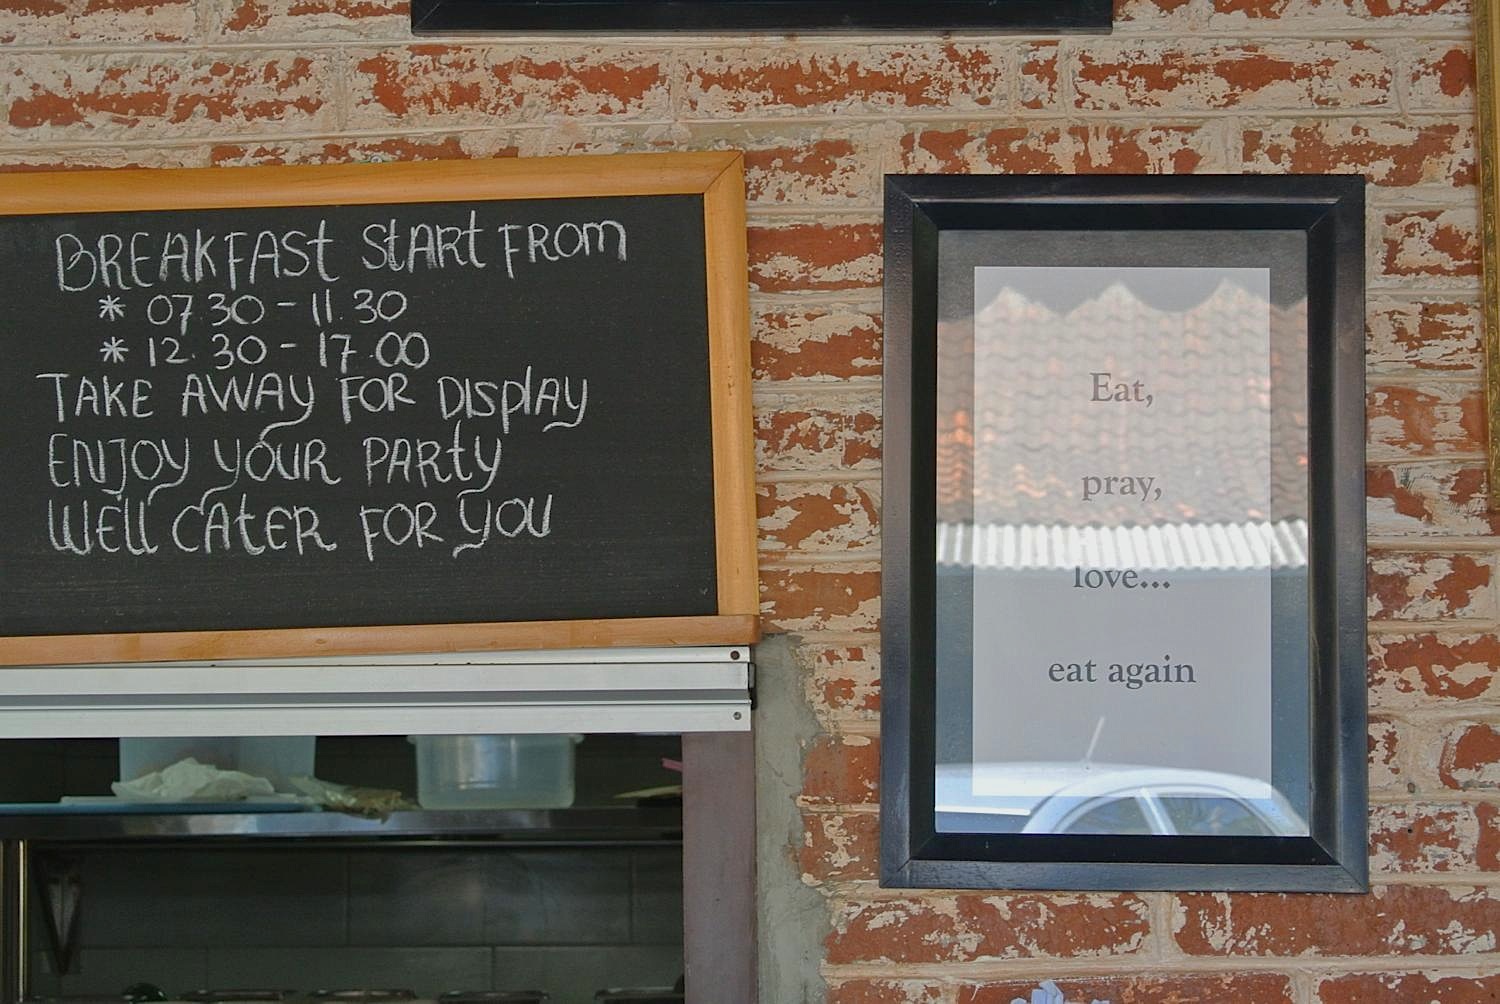 BREAKFAST START FROM
* 07.30 - 11.30
* 12.30 - 17.00
TAKE AWAY FOR DISPLAY
ENJOY YOUR PARTY
WELL CATER FOR YOU
Eat,
pray,
love...
eat again